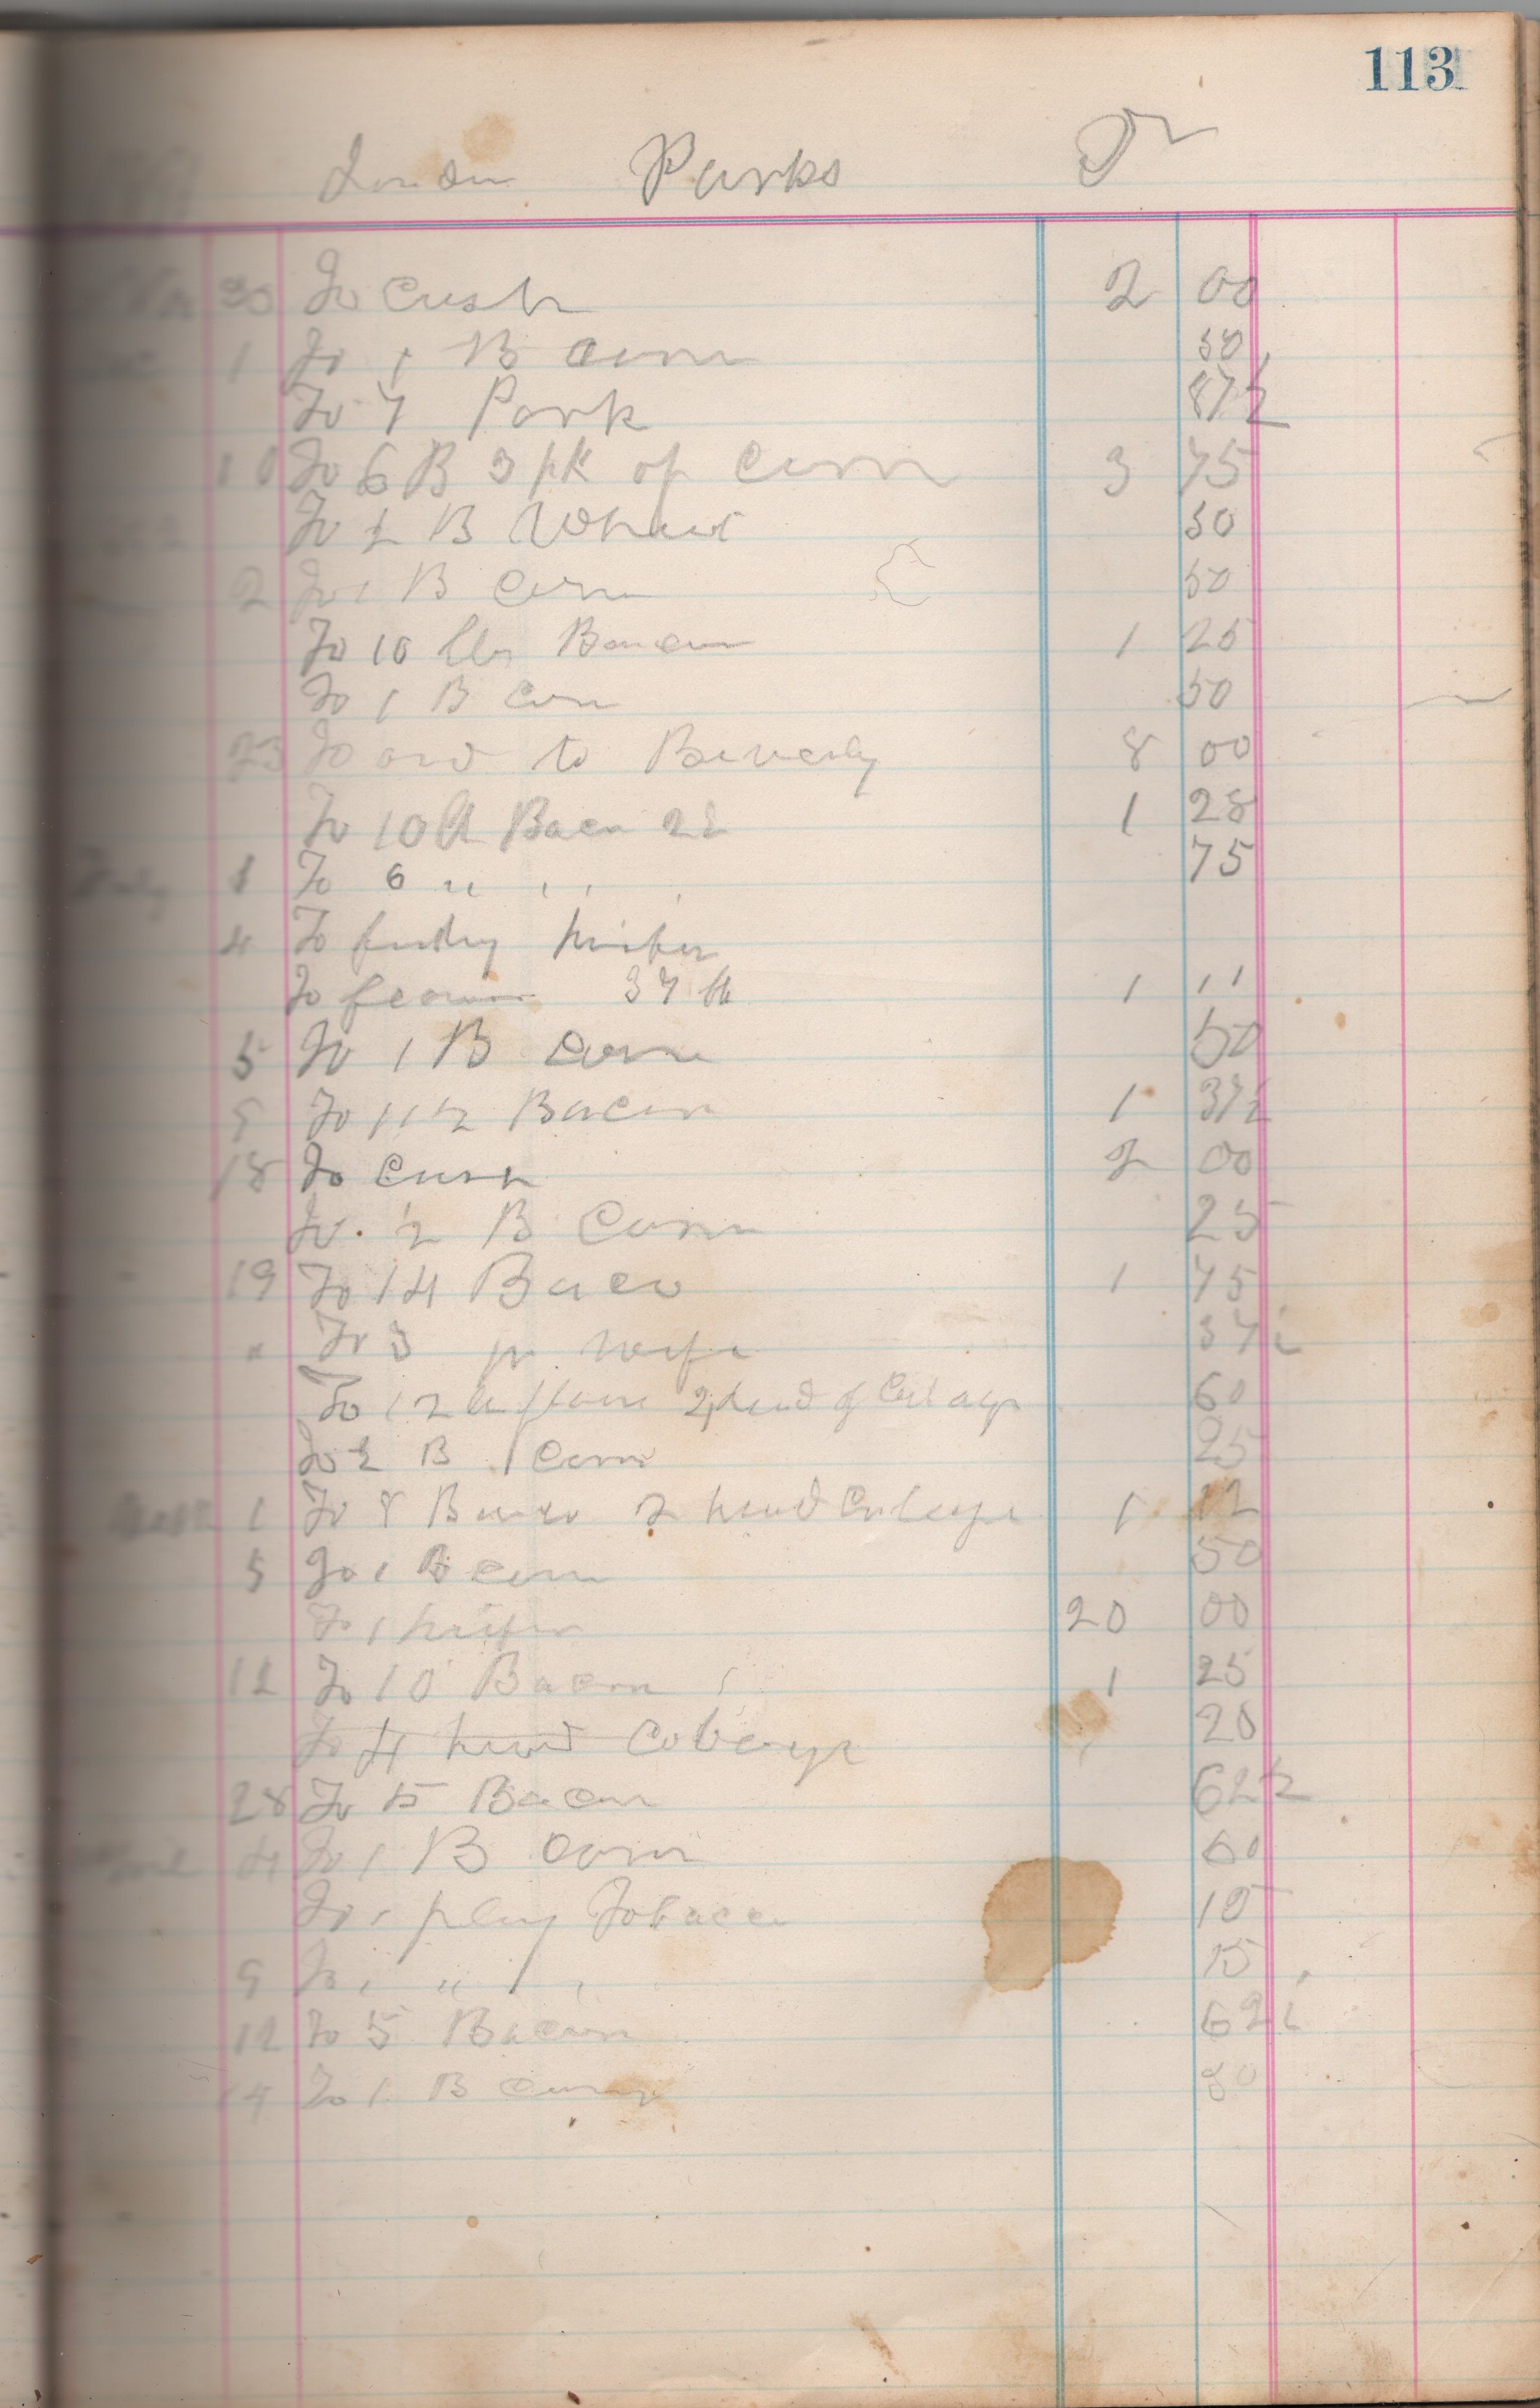 113
London Parks Dr
30 To Cash 2 00
1 To 1 B Corn 50
To 7 Pork 87½
10 To 6 B 3 pk of Corn 3 75
To ½ B Wheat 50
2 To 1 B Corn 50
To 10 lbs Bacon 1 25
To 1 B Corn 50
23 To ord to Beverly 8 00
To 10 lb Bacon 1 25
1 To 6 " " 75
4 To
To 37 lb 1 11
5 To 1 B Corn 50
9 To 11 Bacon 1 37½
18 To Cash 2 00
To ½ B Corn 25
19 To 14 Baco 1 75
" To 3 pr wife 37½
To 12 lb flour 2 head of Cabage 60
To ½ B Corn 25
1 To 8 Bacon 2 head Cabage 1 12
5 To 1 B Corn 50
To 1 heifer 20 00
12 To 10 Bacon 1 25
To 4 head Cabage 20
28 To 5 Bacon 62½
4 To 1 B Corn 60
To 1 plug Tobacco 15
9 To 1 " " 15
12 To 5 Bacon 62½
14 To 1 B Corn